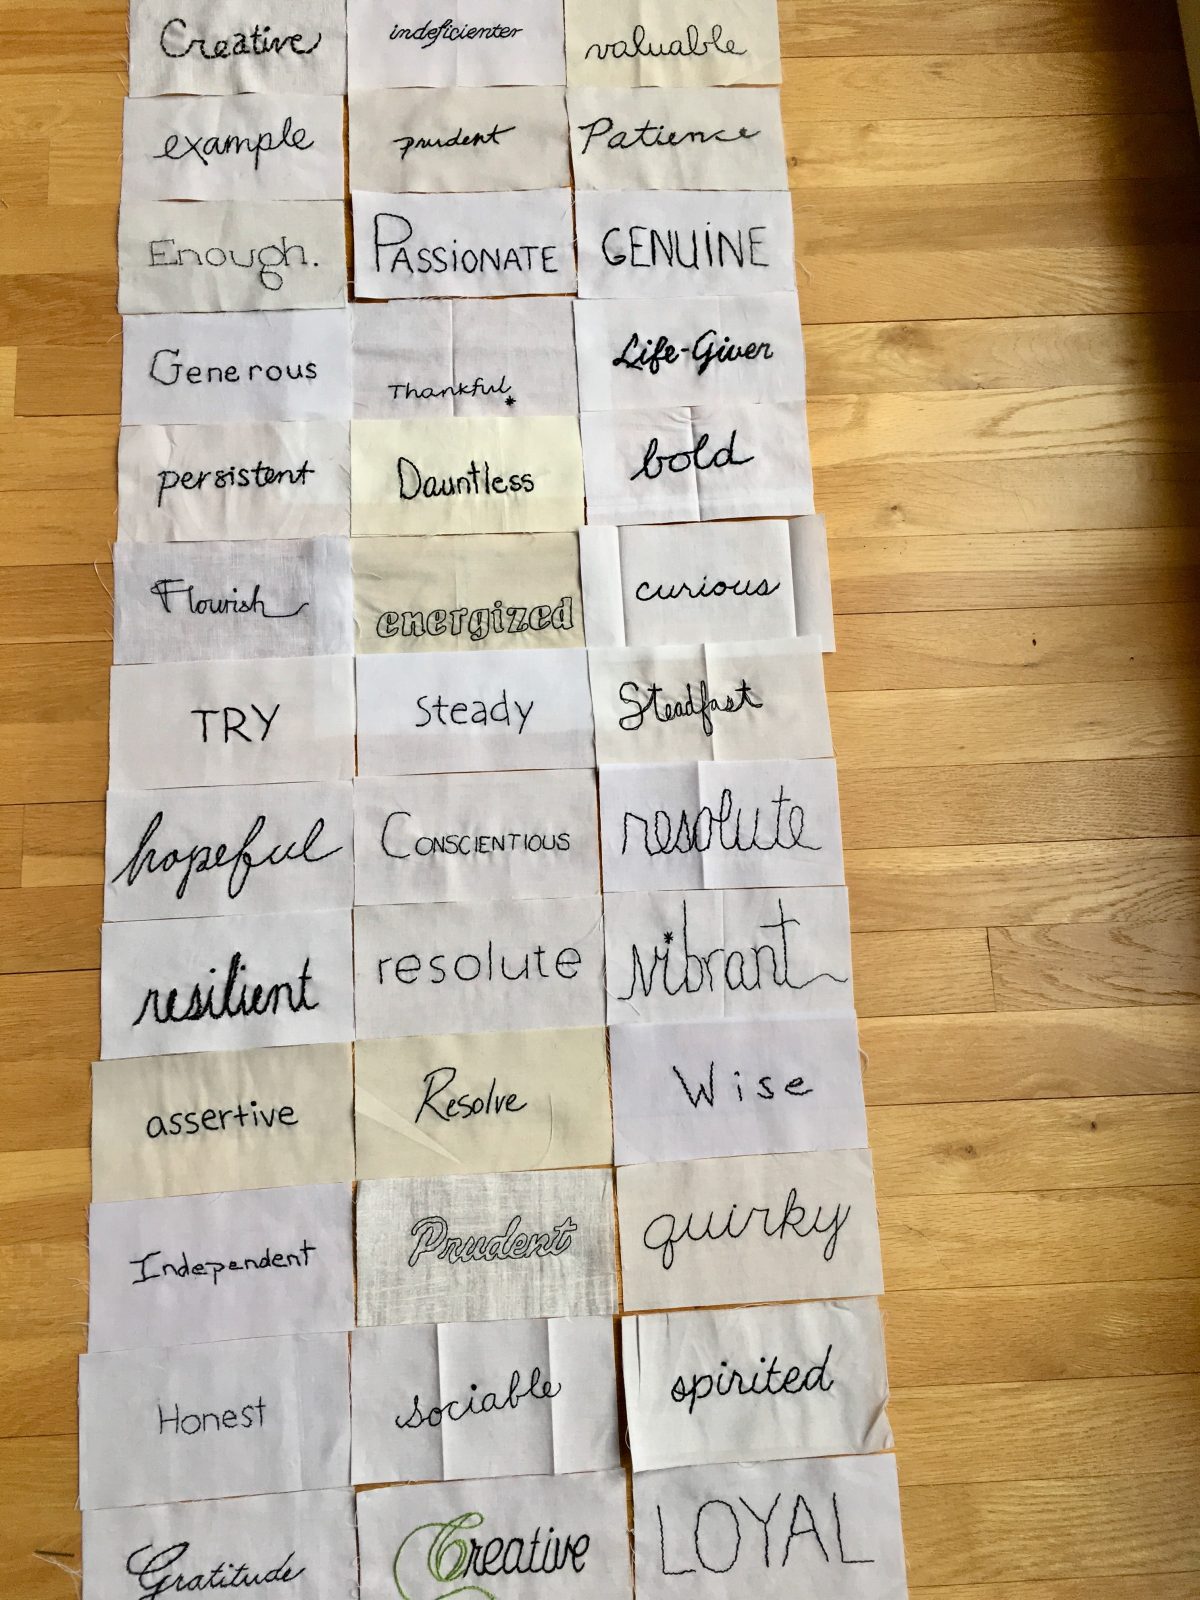 Creative indeficienter valuable
example prudent Patience
Enough. PASSIONATE GENUiNE
Generous Thankful* Life-Giver
persistent Dauntless bold
Flourish energized curious
TRY Steady Steadfast
hopeful CONSCIENTIOUS resolute
resilient resolute vibrant
assertive Resolve Wise
Independent Prudent quirky
Honest sociable spirited
Gratitude Creative LOYAL